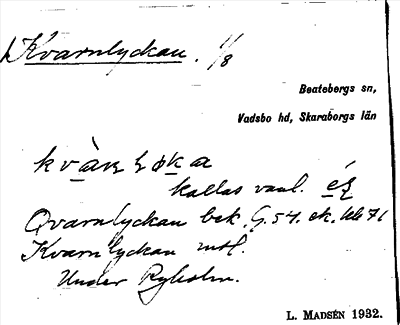 Kvarnlyckan. 1/8
Beatebergs sn,
Vadsbo hd, Skaraborgs län
kallas vanl.
Qvarnlyckan bek. G. 54. ek.
Kvarnlyckan mtl.
Under Ryholm.
L. MADSÉN 1932.